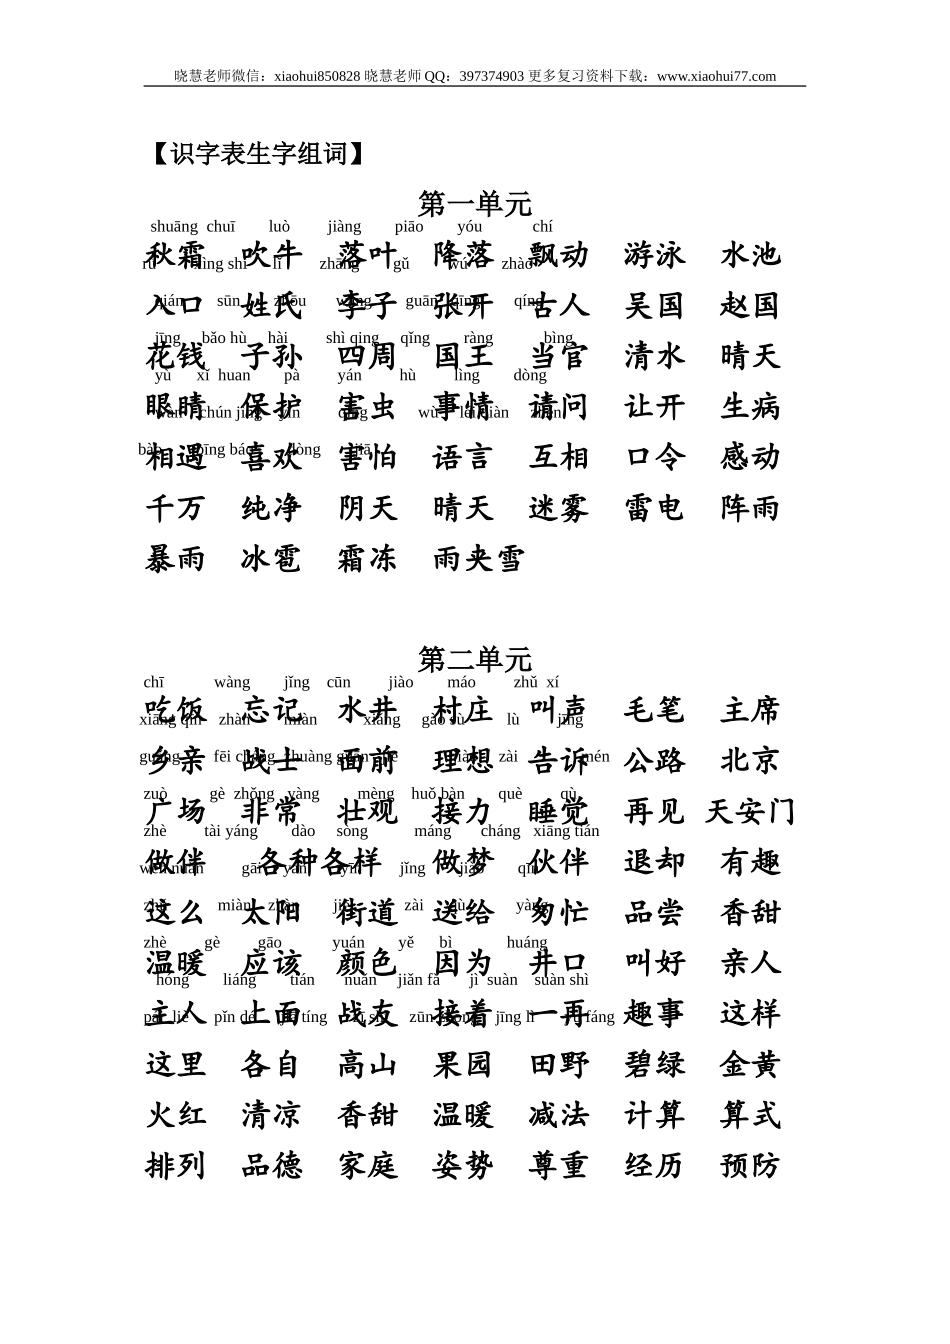 晓慧老师微信：xiaohui850828 晓慧老师 QQ：397374903 更多复习资料下载：www.xiaohui77.com
【识字表生字组词】
第一单元
shuāng chuī luò jiàng piāo yóu chí
秋霜 吹牛 落叶 降落 飘动 游泳 水池
rù xìng shì lǐ zhāng gǔ wú zhào
入口 姓氏 李子 张开 古人 吴国 赵国
qián sūn zhōu wáng guān qīng qíng
花钱 子孙 四周 国王 当官 清水 晴天
jīng bǎo hù hài shì qing qǐng ràng bìng
眼睛 保护 害虫 事情 请问 让开 生病
yù xǐ huan pà yán hù lìng dòng
相遇 喜欢 害怕 语言 互相 口令 感动
wàn chún jìng yīn qíng wù léi diàn zhèn
千万 纯净 阴天 晴天 迷雾 雷电 阵雨
bào bīng báo dòng jiā
暴雨 冰雹 霜冻 雨夹雪
第二单元
chī wàng jǐng cūn jiào máo zhǔ xí
吃饭 忘记 水井 村庄 叫声 毛笔 主席
xiāng qīn zhàn miàn xiǎng gào sù lù jīng
乡亲 战士 面前 理想 告诉 公路 北京
guǎng fēi cháng zhuàng guān jiē jiào zài mén
广场 非常 壮观 接力 睡觉 再见 天安门
zuò gè zhǒng yàng mèng huǒ bàn què qù
做伴 各种各样 做梦 伙伴 退却 有趣
zhè tài yáng dào sòng máng cháng xiāng tián
这么 太阳 街道 送给 匆忙 品尝 香甜
wēn nuǎn gāi yán yīn jǐng jiào qīn
温暖 应该 颜色 因为 井口 叫好 亲人
zhǔ miàn zhàn jiē zài qù yàng
主人 上面 战友 接着 一再 趣事 这样
zhè gè gāo yuán yě bì huáng
这里 各自 高山 果园 田野 碧绿 金黄
hóng liáng tián nuǎn jiǎn fǎ jì suàn suàn shì
火红 清凉 香甜 温暖 减法 计算 算式
pái liè pǐn dé jiā tíng zī shì zūn zhòng jīng lì yù fáng
排列 品德 家庭 姿势 尊重 经历 预防